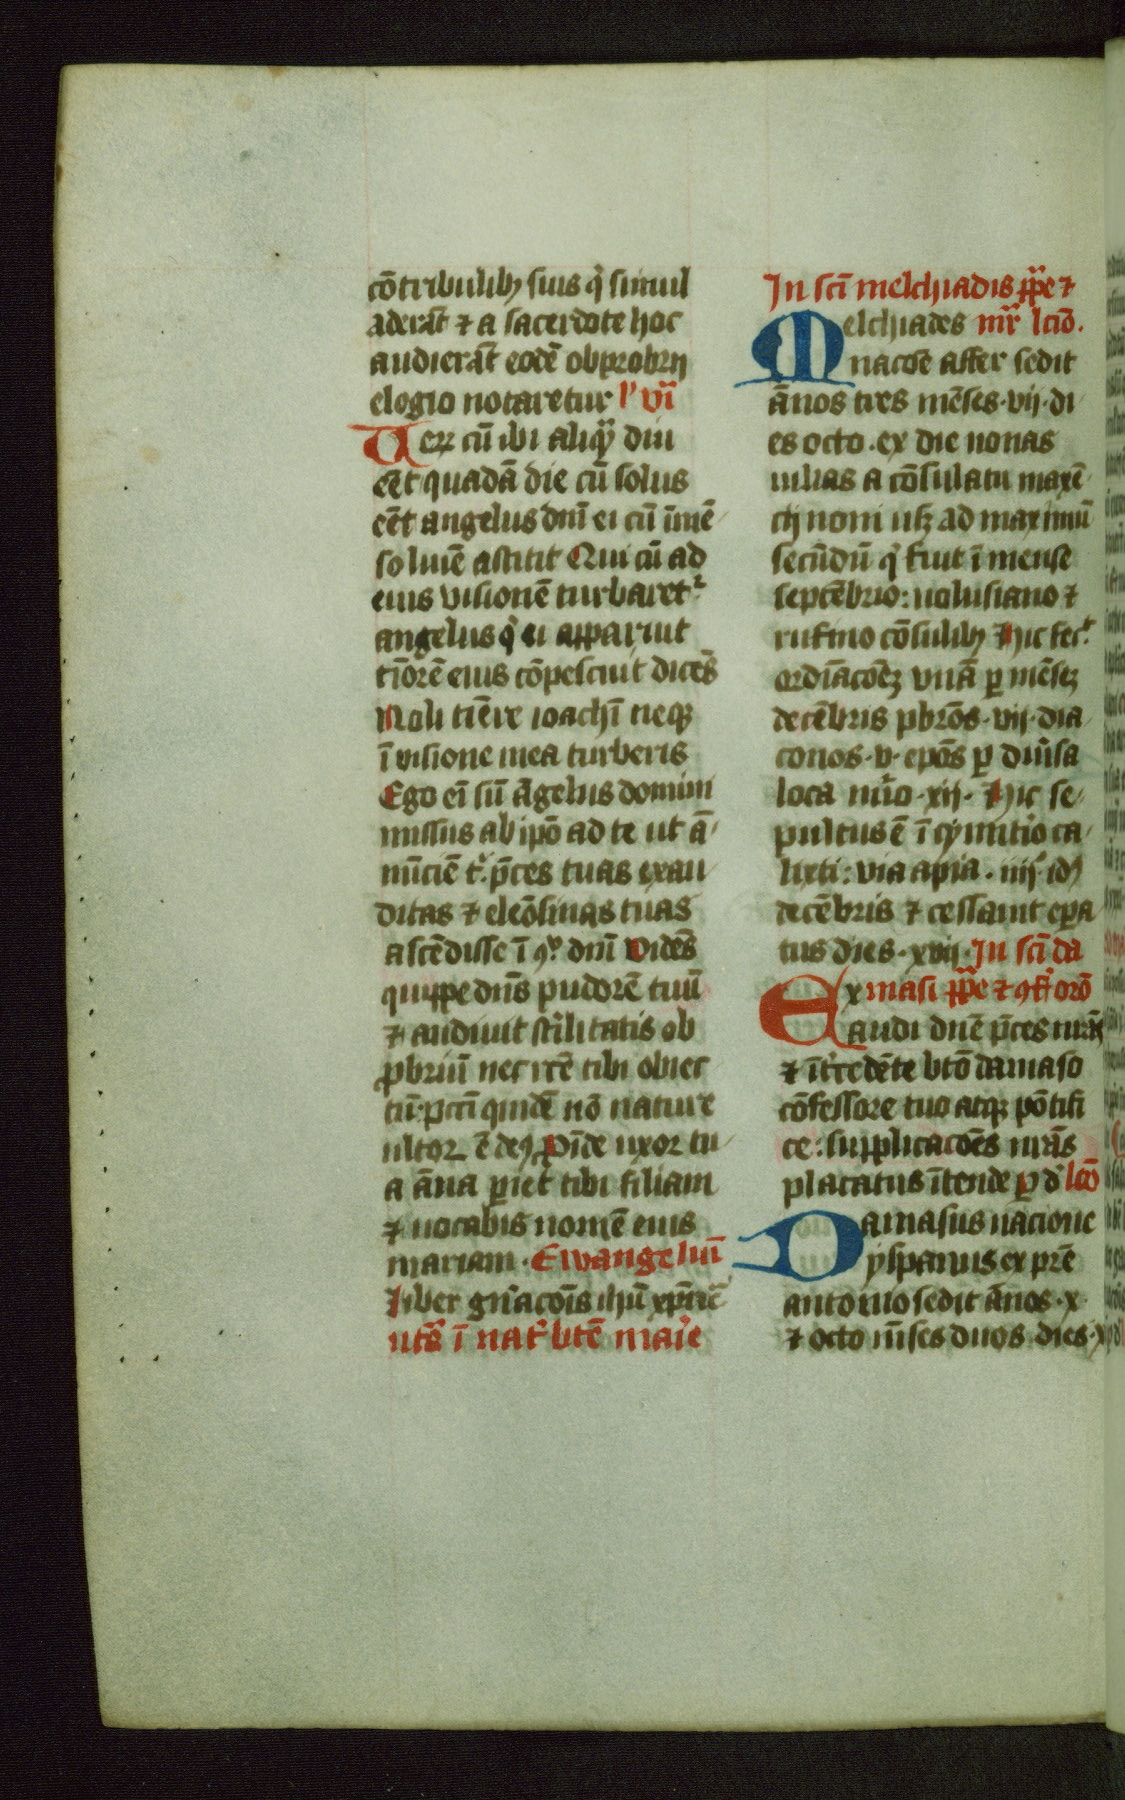 cōtribulibꝫ suis q̄ simul
aderāt ⁊ a sacerdote hoc
audierāt eodē obprobrij
elogio notaretur lº vi
Uerꝝ cū ibi aliqͣ̄diu
eēt quadā die cū solus
eēt angelus dn̄i ei cū īmē
so lumīe astitit Qui cū ad
eius visionē turbaretᷣ
angelus q̄ ei apparuit
timorē eius cōpescuit dicēs
Noli timē̄re ioachī neqꝫ
ī visione mea turberis
Ego em̄ sū āgelus domini
missus ab ip̄o ad te ut ā
nūciē tͥ. p̄ces tuas exau
ditas ⁊ eleōsinas tuas
ascēdisse ī ꝯsͦ. dn̄i Vidēs
quippe dn̄s pudorē tuū
⁊ audiuit st̓ilitatis ob
ꝓbriū nec rc̄ē tibi obiec
tū. pctī quidē nō nature
ultor ē deꝰ Proīde uxor tu
a āna pariet tibi filiam
⁊ uocabis nomē eius
mariam. Ewangeliū
Liber gn̄acōis ihū xp̄i rē
utͣ ī nat̓ btē marͥe
In sc̄i melchiadis pp̄e ⁊
Melchiades mr̄ lcīo.
nacōe affer sedit
ānos tres mēses. vij. di
es octo. ex die nonas
iulias a cōsulatu maxē
cij noni usqꝫ ad maximū
secūdū q̄ fuit ī mense
septēbrio: uolusiano ⁊
rufino cōsulibꝫ Hic fecͭ
ordīacōeꝫ vnā ꝑ mēseꝫ
decēbris pbr̄os. vij. dia
conos. v. ep̄os ꝑ diu̓sa
loca nu̓o. xij. Hic se
pultus ē ī cymitͥo ca
lixti: via apia. iiijº idꝰ
decēbris ⁊ cessauit ep̄a
tus dies. xvij. In sc̄i da
Exmasi pp̄e ⁊ ꝯf̄ oro
audi dn̄e p̄ces nr̄as
⁊ īt̓cedēte btō damaso
cōfessore tuo atqꝫ pōtifi
ce: supplicacōes nr̄as
placatus ītende ꝑ d̄ lcō
Damasus nacione
yspanus ex pr̄e
antonio sedit ānos. x
⁊ octo m̄ses duos dies. x